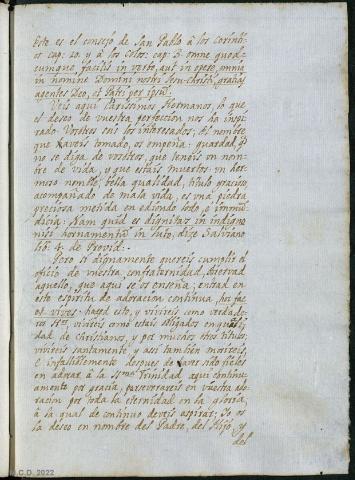 Este es el consejo de San Pablo à los Corinti-
os cap. 10. y à los Colos: cap. 3. omne quod-
cumque facitis in verbo, aut in opere, omnia
in nomine Domini nostri Jesu-Christi, gratias
agentes Deo, et Patri per ipsum.
Veis aqui Charissimos Hermanos, lo que
es deseo de vuestra perfeccion nos ha inspi-
rado. Vosotros sois los interesados; el nombre
que haveis tomado, os empeña: guardad, q̃
no se diga de vosotros, que teneis un nom-
bre de vida, y que estais muertos: un her-
moso nombre, bella qualidad, titulo gracioso,
acompañado de mala vida, es una piedra
preciosa metida en ediondo lodo, e inmun-
dicia: Nam quid es dignitas in indigno
nisi hornamentum in luto, dize Salviano
lib. 4. de Provid:-
Pero si dignamente quereis cumplir el
oficio de vuestra confraternidad, observad
aquello, que aqui se os enseña; entrad en
este espiritu de adoracion continua, hoc fac
et vives: hazed esto, y vivireis como verdade-
ros vivireis como estais obligados en
dad de christianos, y por muchos otros titulos;
vivireis santamente, y assi tambien morireis,
e infaliblemente despues de haver sido fieles
en adorar à la SSma. Trinidad aqui continu-
amente por gracia, perseverareis en vuestra ado-
racion por toda la eternidad en la gloria,
à la qual de continuo deveis aspirar; Yo os
la deseo en nombre del Padre, del Hijo, y
del
C.D. 2022